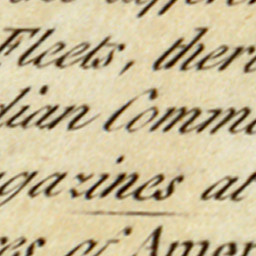 Fleets, ther
dian Comm
gazines at
res of Amer